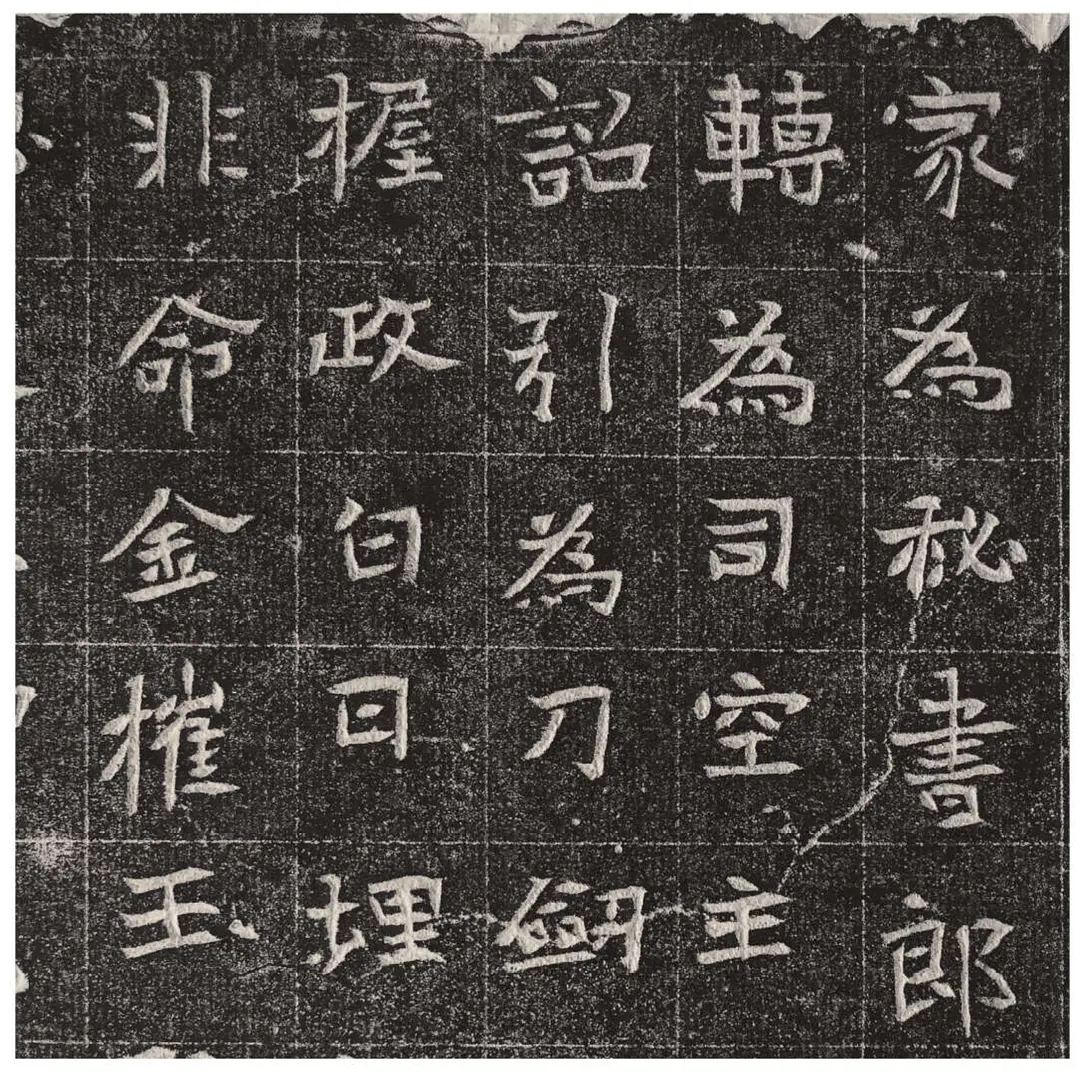 家為秘書郎
轉為司空主
詔引為刀劒
握政白日埋
非命金摧玉